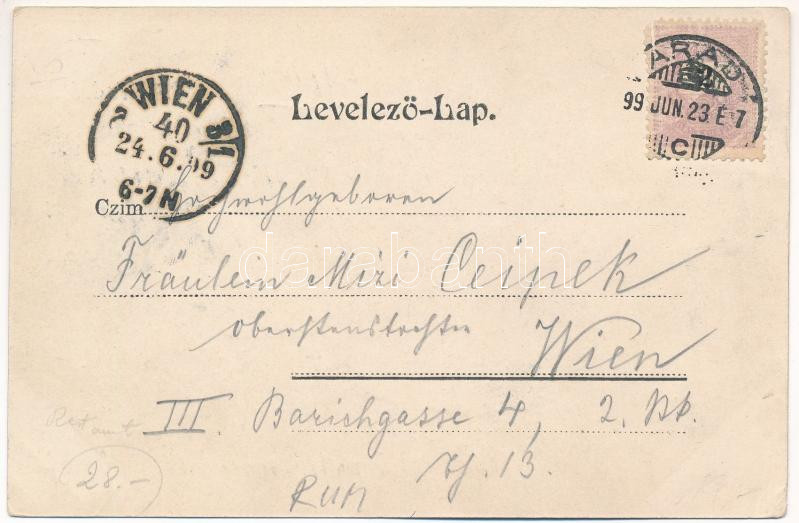 WIEN 3/1
40
24.6.99
6-7N
Levelező-Lap.
ARAD
99 JUN.23 E 7
C
Czim Hochwohlgeboren
darabanth
Fräulein Mizi Ceipek
oberstenstochter
Wien
III. Barichgasse 4, 2. Stk.
Th. 13.
28.-
RUM